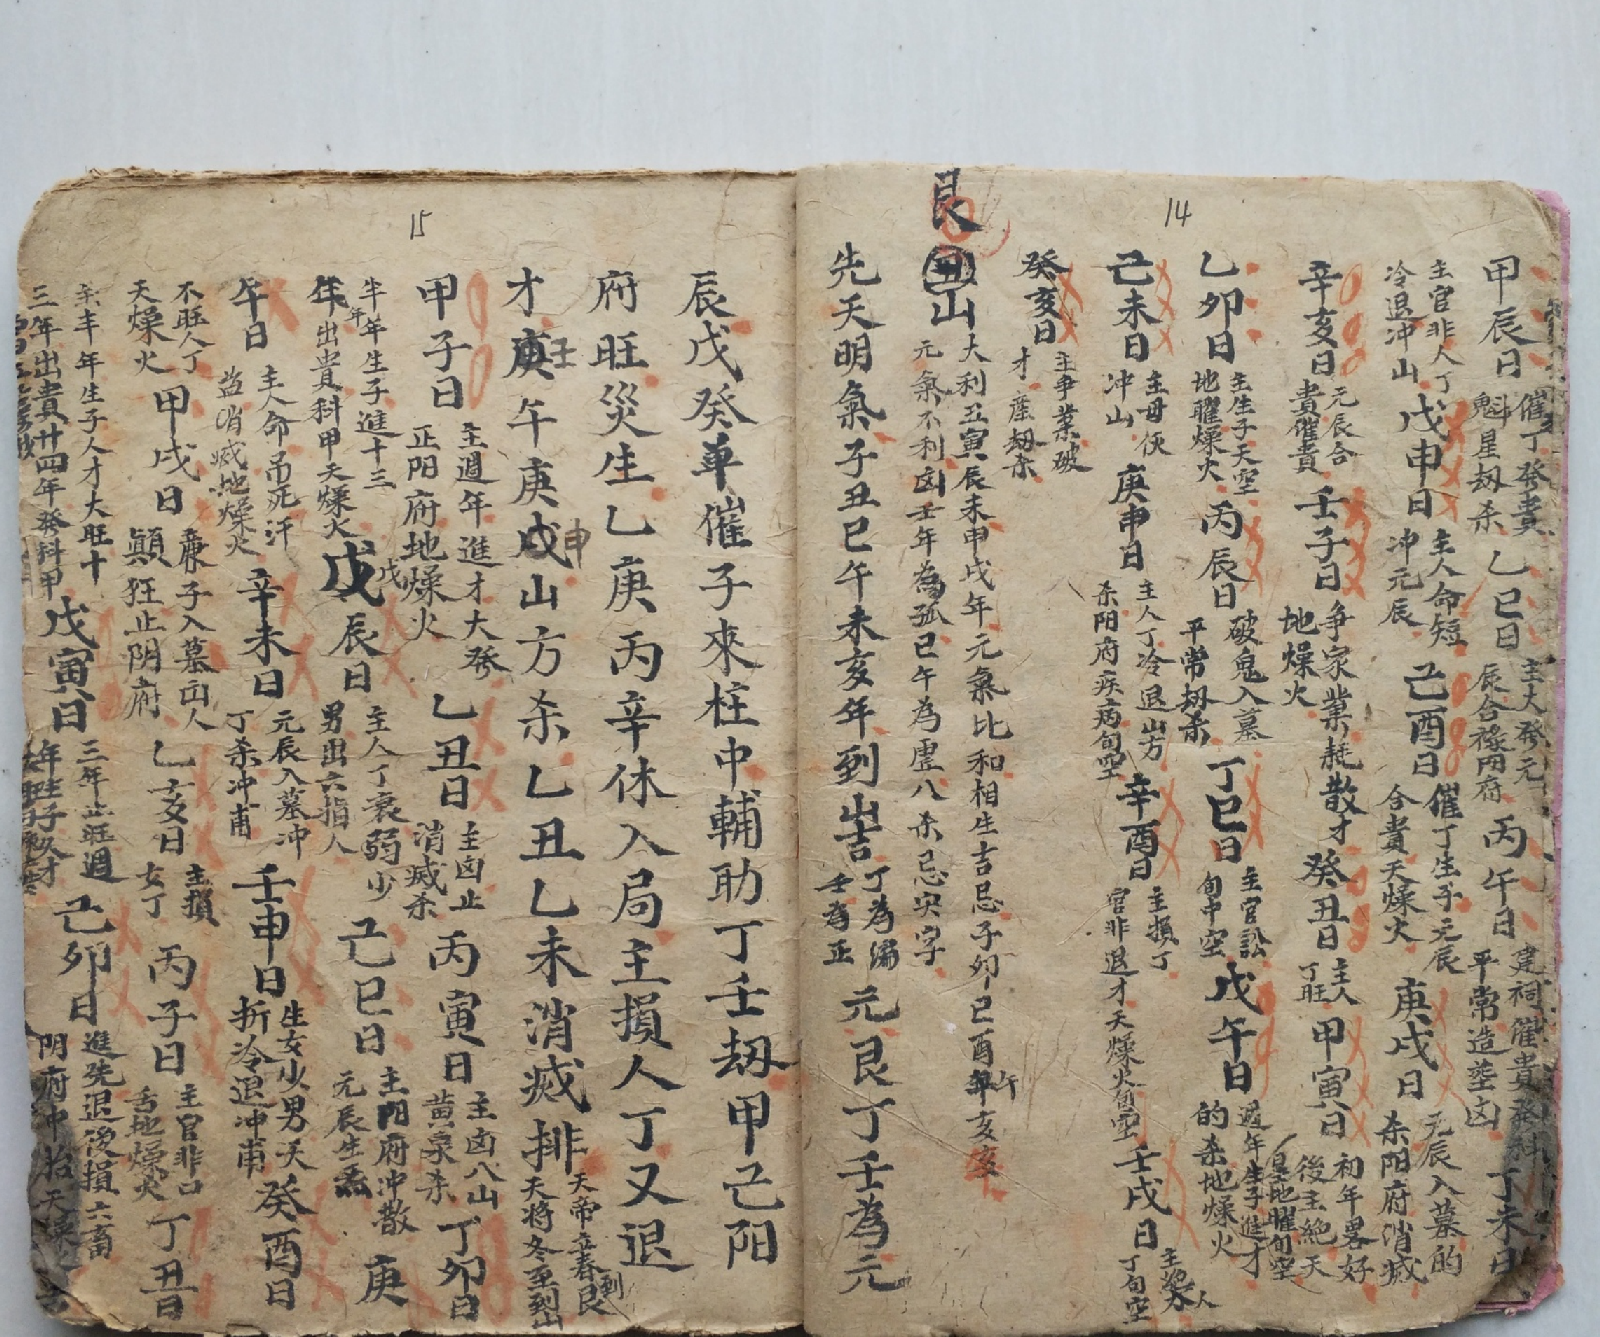 14
甲辰日 催丁發貴 魁星刼杀 乙巳日 主大發元 辰合祿阴府 丙午日 建祠催貴發科 平常造塟凶 丁未日
主官非人丁 冷退冲山 戊申日 主人命短 冲元辰 己酉日 催丁生子元辰 合貴天燥火 庚戌日 元辰入墓的 杀阳府消滅
辛亥日 元辰合 貴催貴 壬子日 争家業耗散才 地燥火 癸丑日 主人 丁旺 甲寅日 初年畧好 後主絶天
乙卯日 主生子天空 地曜燥火 丙辰日 破鬼入墓 平常刼杀 丁巳日 主官訟 旬中空 戊午日 週年生子進才 的杀地燥火
己未日 主母 冲山 庚申日 主人丁冷退山方 杀阳府疾病旬空 辛酉日 主損丁 官非退才天燥火旬空 壬戌日 丁旬空
癸亥日 主争業破 才產刼杀
艮
丑山 大利丑寅辰未申戌年元氣比和相生吉忌子卯巳酉午亥 元氣不利凶壬年為孤巳午為虛八杀忌寅字
先天明氣子丑巳午未亥年到山吉 丁為偏 壬為正 元艮丁壬為元
15
辰戊癸年催子來柱中輔助丁壬刼甲己阳
府旺災生乙庚丙辛休入局主損人丁又退
才庚午庚戌申山方杀乙丑乙未消滅排 天帝立春到艮 天将冬至到山
甲子日 主週年進才大發 正阳府地燥火 乙丑日 主凶止 消滅杀 丙寅日 主凶八山 黄泉杀 丁卯日
半年生子進十三 年出貴科甲天燥火 戊辰日 主人丁衰弱少 男出六指人 己巳日 主阳府冲散 元辰生炁 庚
午日 主人命吊死汗 益消滅地燥火 辛未日 元辰入墓冲 丁杀冲甫 壬申日 生女少男天 折冷退冲甫 癸酉日
不旺人丁 天燥火 甲戌日 廉子入墓出人 顛狂止阴府 乙亥日 主損 女丁 丙子日 主官非口 舌地燥火 丁丑
年年生子人才大旺十 三年出貴廿四年發科甲 戊寅日 三年止旺週 年生子人才 己卯日 進先退後損六畜 阴府中 天燥火